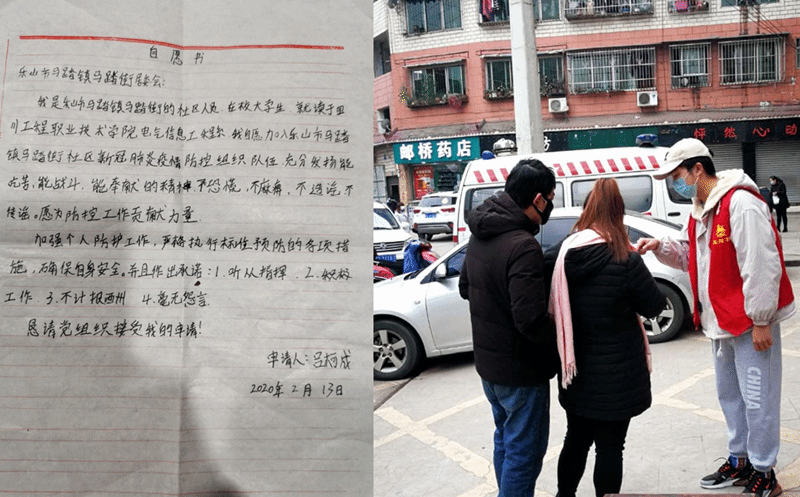 自愿书
乐山市马踏镇马踏街居委会:
我是乐山市马踏镇马踏街的社区人员.在校大学生 就读于四
川工程职业技术学院电气信息工程系 我自愿加入乐山市马踏
镇马踏街社区新冠肺炎疫情防控组织队伍.充分发扬能
吃苦,能战斗.能奉献的精神.不恐慌,不麻痹,不造谣,不
传谣.愿为防控工作贡献力量.
加强个人防护工作,严格执行标准预防的各项措
施,确保自身安全.并且作出承诺:1.听从指挥.2.积极
工作 3.不计报酒州 4.毫无怨言.
恳请党组织接受我的申请!
申请人:吕柯成
2020年2月13日
邮桥药店
怦然心动
CHINA